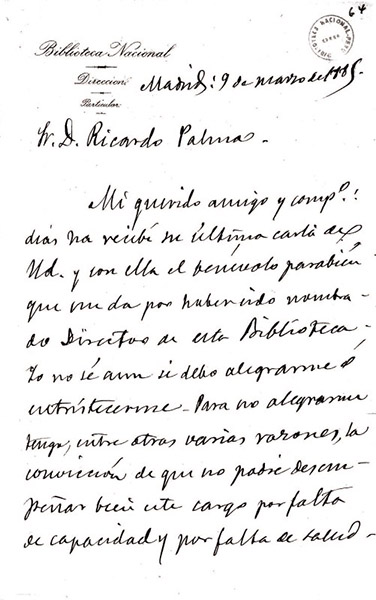 64
Biblioteca Nacional
Direccion
Particular
Madrid: 9 de marzo de 1885
Sr. D. Ricardo Palma.
Mi querido amigo y compº.:
dias ha recibí su última carta de
Ud. y con ella el benévolo parabién
que me da por haber sido nombra-
do Director de esta Biblioteca.
Yo no sé aun si debo alegrarme ó
entristecerme. Para no alegrarme
tengo, entre otras varias razones, la
convicción de que no podré desem-
peñar bien este cargo por falta
de capacidad y por falta de salud.